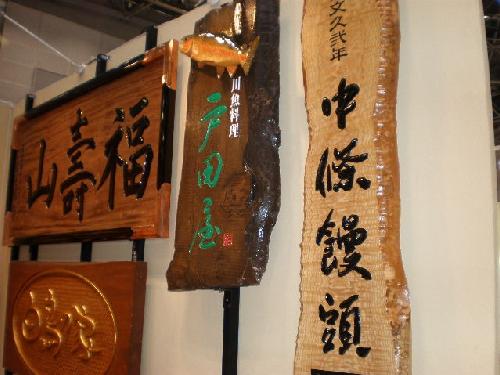 文久弐年
中條饅頭
川魚料理
戸田屋
山壽福